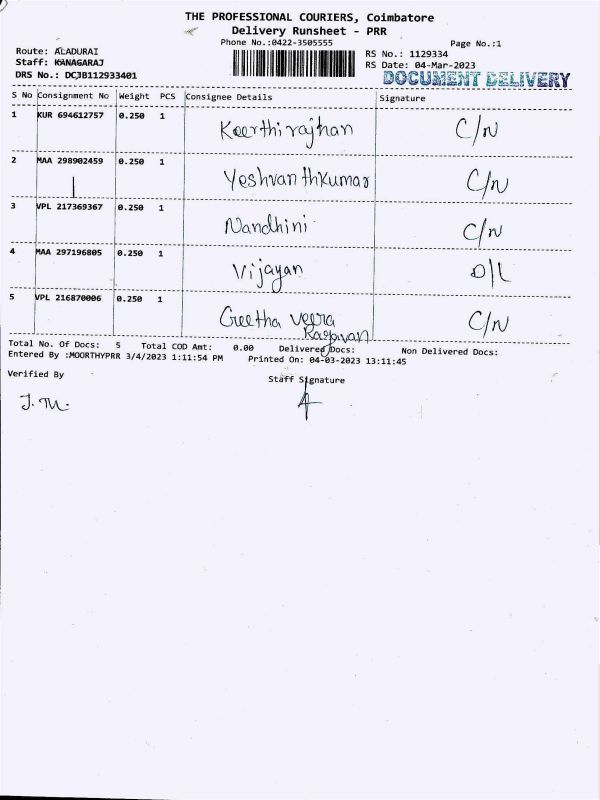 THE PROFESSIONAL COURIERS, Coimbatore
Delivery Runsheet - PRR
Phone No.:0422-3505555 Page No.:1
Route: ALADURAI RS No.: 1129334
Staff: KANAGARAJ RS Date: 04-Mar-2023
DRS No.: DCJB112933401 DOCUMENT DELIVERY
S No Consignment No Weight PCS Consignee Details Signature
1 KUR 694612757 0.250 1 Keerthirajhan C/N
2 MAA 298902459 0.250 1 Yeshvanthkumar C/N
3 VPL 217369367 0.250 1 Nandhini C/N
4 MAA 297196805 0.250 1 Vijayan D/L
5 VPL 216870006 0.250 1 Geetha Veera C/N
Ragavan
Total No. Of Docs: 5 Total COD Amt: 0.00 Delivered Docs: Non Delivered Docs:
Entered By :MOORTHYPRR 3/4/2023 1:11:54 PM Printed On: 04-03-2023 13:11:45
Verified By Staff Signature